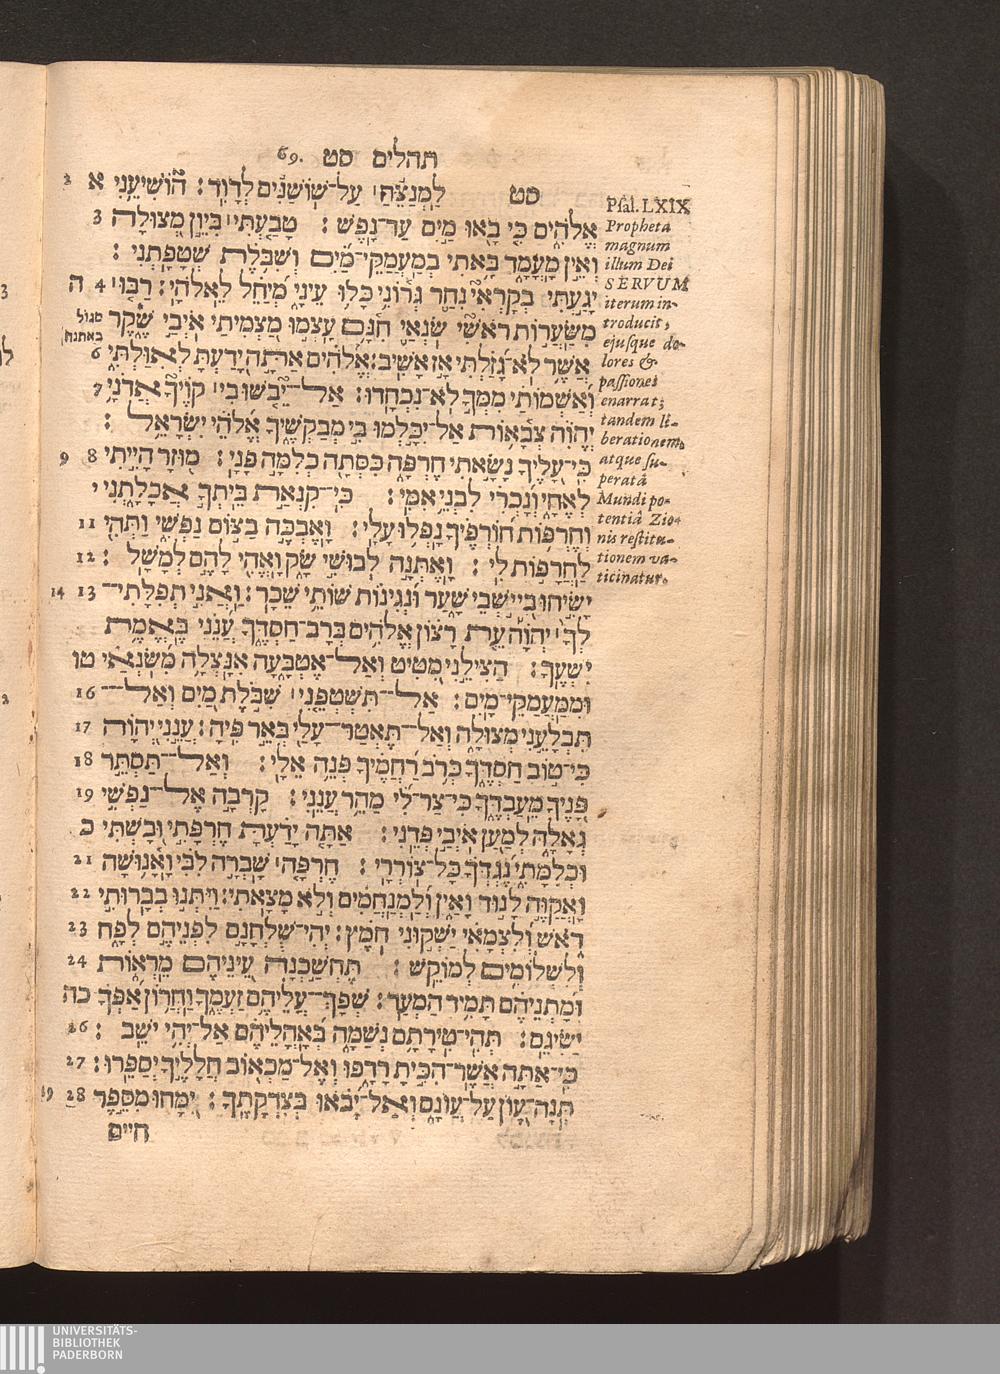 תהלים סט 69.
סט לַמְנַצֵּחַ׀ עַל־שׁוֹשַׁנִּים לְדָוִד׃ הוֹשִׁיעֵנִי א 2
אֱלֹהִים כִּי בָאוּ מַיִם עַד־נָפֶשׁ׃ טָבַעְתִּי׀ בִּיוֵן מְצוּלָה 3
וְאֵין מָעֳמָד בָּאתִי בְמַעֲמַקֵּי־מַיִם וְשִׁבֹּלֶת שְׁטָפָתְנִי׃
יָגַעְתִּי בְקָרְאִי נִחַר גְּרוֹנִי כָּלוּ עֵינַי מְיַחֵל לֵאלֹהָי׃ רַבּוּ׀ 4 ה
מִשַּׂעֲרוֹת רֹאשִׁי שֹׂנְאַי חִנָּם עָצְמוּ מַצְמִיתַי אֹיְבַי שֶׁקֶר
אֲשֶׁר לֹא־גָזַלְתִּי אָז אָשִׁיב׃ אֱלֹהִים אַתָּה יָדַעְתָּ לְאִוַּלְתִּי 6
וְאַשְׁמוֹתַי מִמְּךָ לֹא־נִכְחָדוּ׃ אַל־יֵבֹשׁוּ בִי׀ קוֶֹיךָ אֲדֹנָי 7
יֱהֹוִה צְבָאוֹת אַל־יִכָּלְמוּ בִי מְבַקְשֶׁיךָ אֱלֹהֵי יִשְׂרָאֵל׃
כִּי־עָלֶיךָ נָשָׂאתִי חֶרְפָּה כִּסְּתָה כְלִמָּה פָנָי׃ מוּזָר הָיִיתִי 8 9
לְאֶחָי וְנָכְרִי לִבְנֵי אִמִּי׃ כִּי־קִנְאַת בֵּיתְךָ אֲכָלָתְנִי י
וְחֶרְפּוֹת חוֹרְפֶיךָ נָפְלוּ עָלָי׃ וָאֶבְכֶּה בַצּוֹם נַפְשִׁי וַתְּהִי 11
לַחֲרָפוֹת לִי׃ וָאֶתְּנָה לְבוּשִׁי שָׂק וָאֱהִי לָהֶם לְמָשָׁל׃ 12
יָשִׂיחוּ בִי יֹשְׁבֵי שָׁעַר וּנְגִינוֹת שׁוֹתֵי שֵׁכָר׃ וַאֲנִי תְפִלָּתִי־ 13 14
לְךָ׀ יְהוָֹה עֵת רָצוֹן אֱלֹהִים בְּרָב־חַסְדֶּךָ עֲנֵנִי בֶּאֱמֶת
יִשְׁעֶךָ׃ הַצִּילֵנִי מִטִּיט וְאַל־אֶטְבָּעָה אִנָּצְלָה מִשֹּׂנְאַי טו
וּמִמַּעֲמַקֵּי־מָיִם׃ אַל־תִּשְׁטְפֵנִי׀ שִׁבֹּלֶת מַיִם וְאַל־ 16
תִּבְלָעֵנִי מְצוּלָה וְאַל־תֶּאְטַר־עָלַי בְּאֵר פִּיהָ׃ עֲנֵנִי יְהוָֹה 17
כִּי־טוֹב חַסְדֶּךָ כְּרֹב רַחֲמֶיךָ פְּנֵה אֵלָי׃ וְאַל־תַּסְתֵּר 18
פָּנֶיךָ מֵעַבְדֶּךָ כִּי־צַר־לִי מַהֵר עֲנֵנִי׃ קָרְבָה אֶל־נַפְשִׁי 19
גְאָלָהּ לְמַעַן אֹיְבַי פְּדֵנִי׃ אַתָּה יָדַעְתָּ חֶרְפָּתִי וּבָשְׁתִּי כ
וּכְלִמָּתִי נֶגְדְּךָ כָּל־צוֹרְרָי׃ חֶרְפָּה׀ שָׁבְרָה לִבִּי וָאָנוּשָׁה 21
וָאֲקַוֶּה לָנוּד וָאַיִן וְלַמְנַחֲמִים וְלֹא מָצָאתִי׃ וַיִּתְּנוּ בְּבָרוּתִי 22
רֹאשׁ וְלִצְמָאִי יַשְׁקוּנִי חֹמֶץ׃ יְהִי־שֻׁלְחָנָם לִפְנֵיהֶם לְפָח 23
וְלִשְׁלוֹמִים לְמוֹקֵשׁ׃ תֶּחְשַׁכְנָה עֵינֵיהֶם מֵרְאוֹת 24
וּמָתְנֵיהֶם תָּמִיד הַמְעַד׃ שְׁפָךְ־עֲלֵיהֶם זַעְמֶךָ וַחֲרוֹן אַפְּךָ כה
יַשִּׂיגֵם׃ תְּהִי־טִירָתָם נְשַׁמָּה בְּאָהֳלֵיהֶם אַל־יְהִי יֹשֵׁב׃ 26
כִּי־אַתָּה אֲשֶׁר־הִכִּיתָ רָדָפוּ וְאֶל־מַכְאוֹב חֲלָלֶיךָ יְסַפֵּרוּ׃ 27
תְּנָה־עָוֹן עַל־עֲוֹנָם וְאַל־יָבֹאוּ בְּצִדְקָתֶךָ׃ יִמָּחוּ מִסֵּפֶר 28 29
חיים
סגול
באתנח
Psal. LXIX
Propheta
magnum
illum Dei
SERVUM
iterum in-
troducit,
ejusque do-
lores &
passiones
enarrat;
tandem li-
berationem,
atque su-
peratâ
Mundi po-
tentiâ Zio-
nis restitu-
tionem va-
ticinatur.
UNIVERSITÄTS-
BIBLIOTHEK
PADERBORN